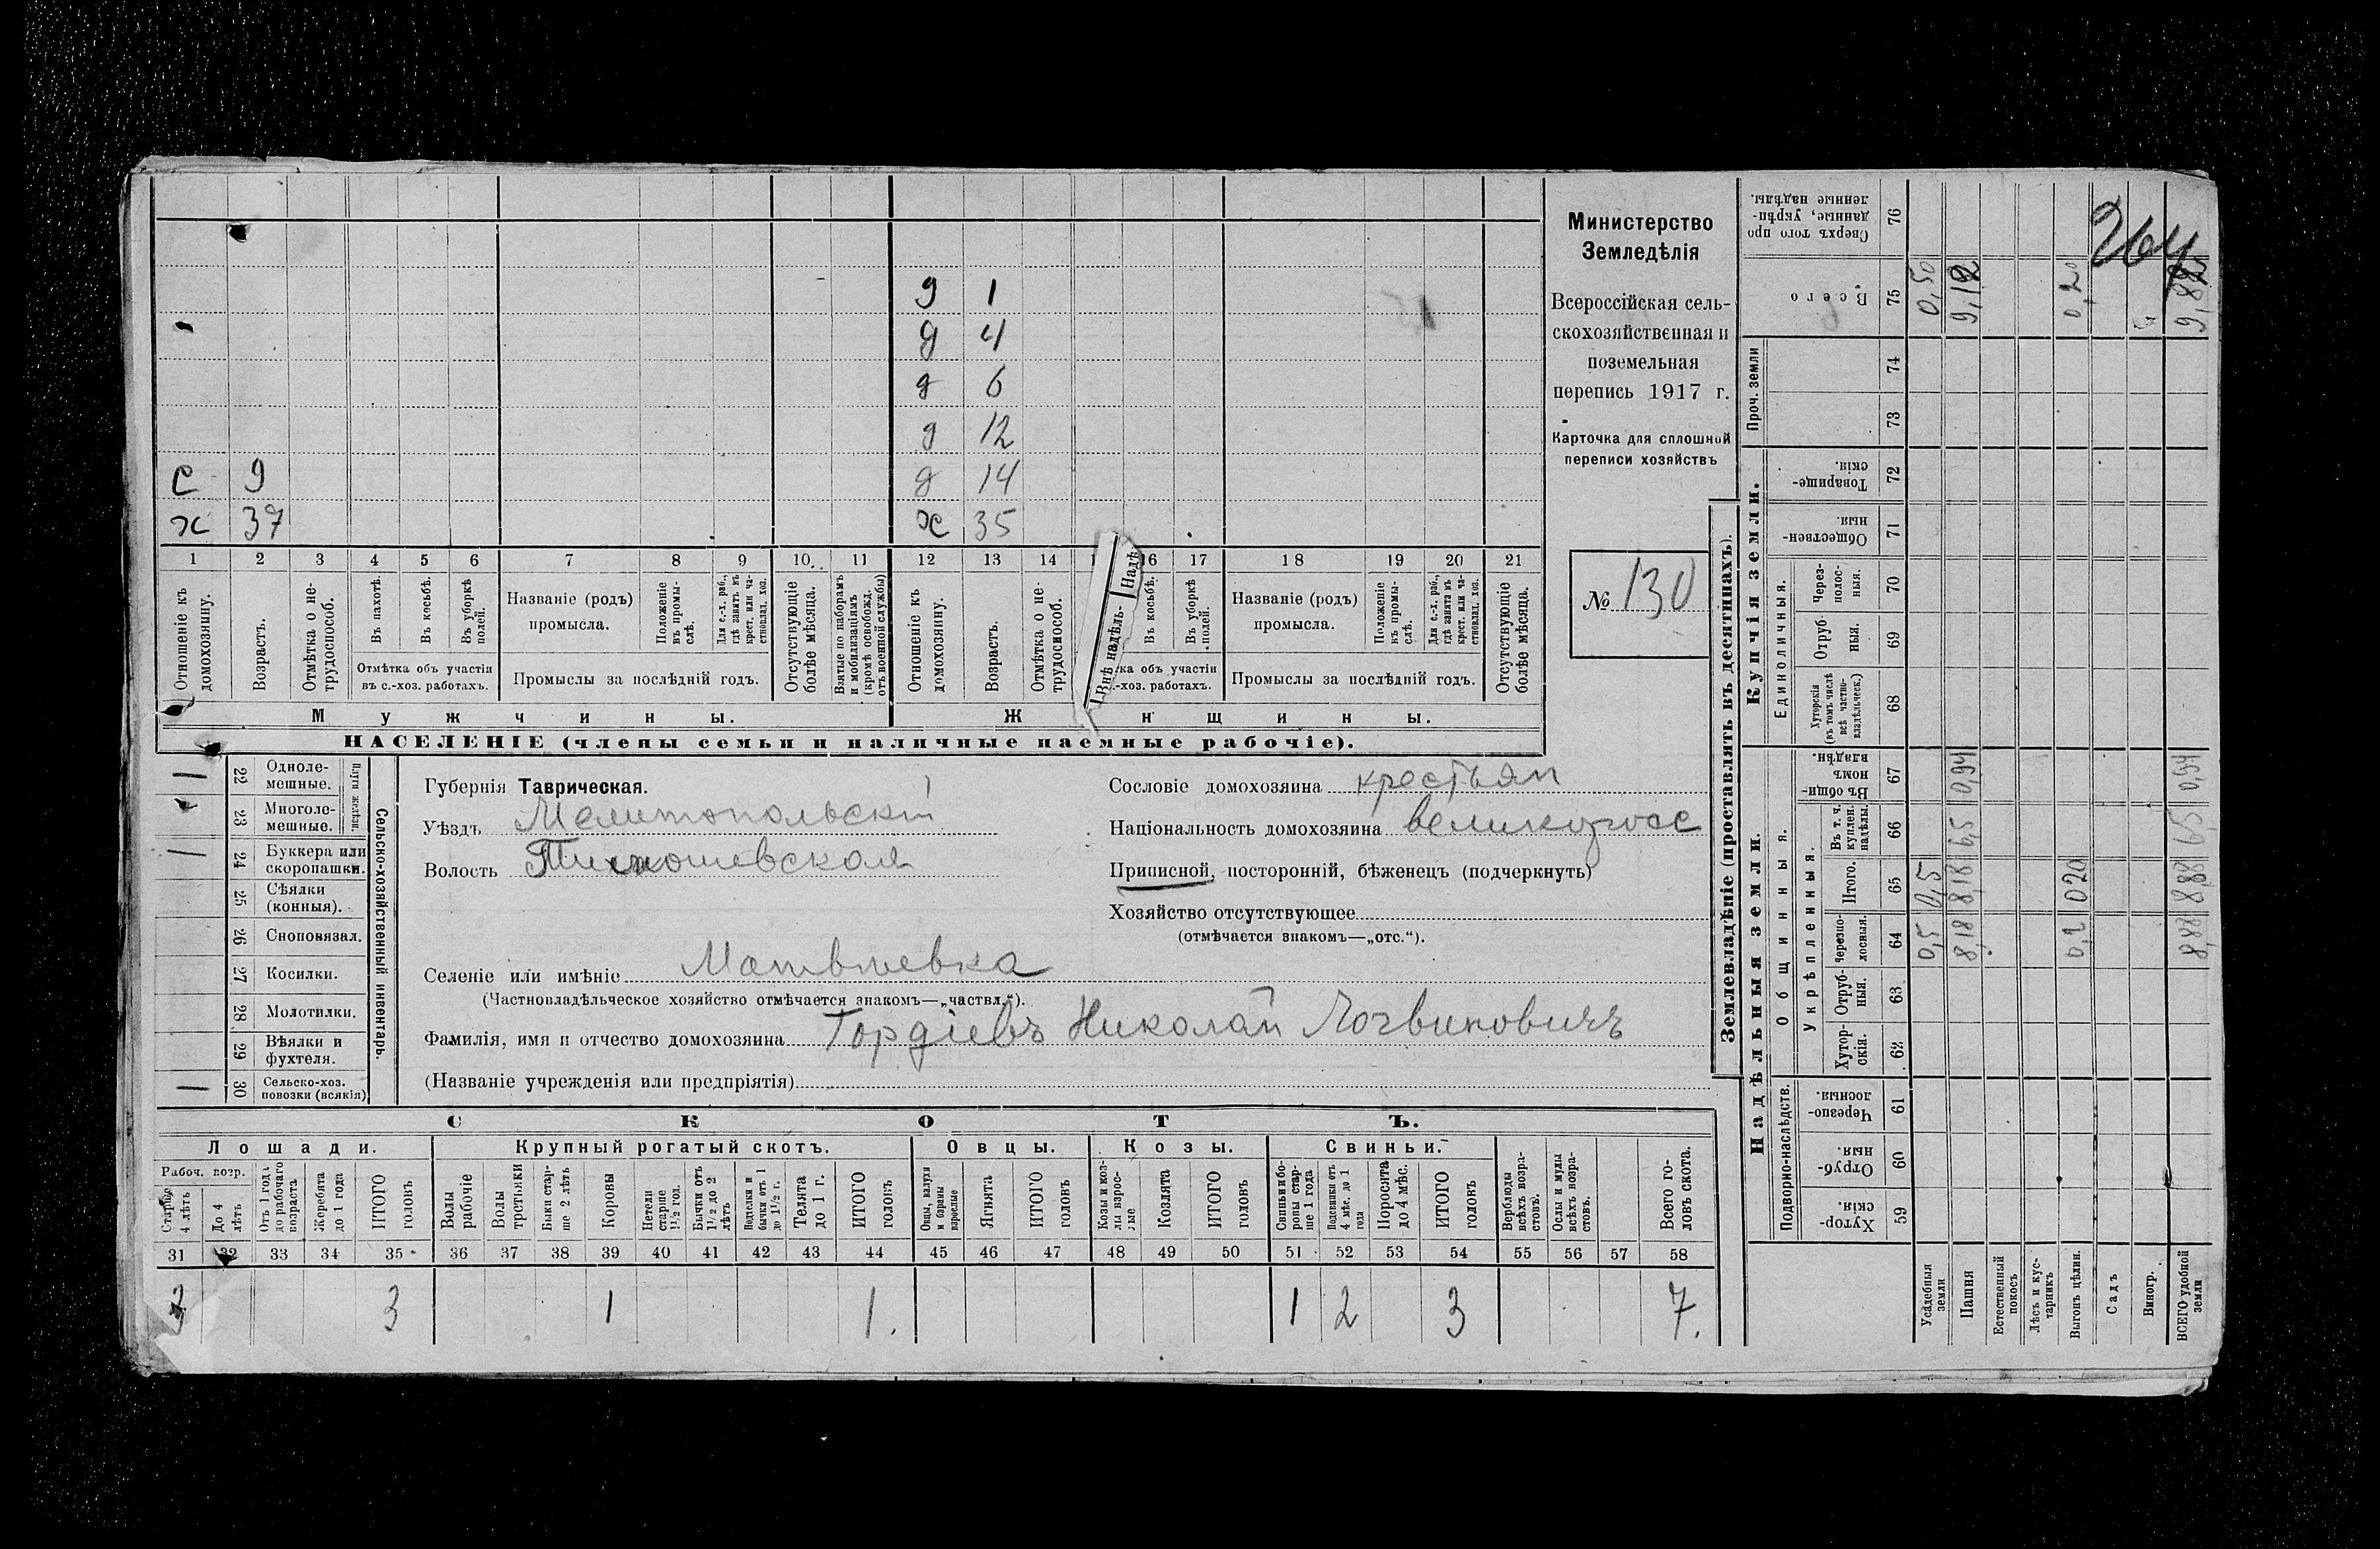 д 1
д 4
д 6
д 12
с 9 д 14
х 37 ж 35
1 2 3 4 5 6 7 8 9 10 11 12 13 14 16 17 18 19 20 21
Отношеніе къ домохозяину.
Возрастъ.
Отмѣтка о не-трудоспособ.
Въ пахотѣ.
Въ косьбѣ.
Въ уборкѣ полей.
Отмѣтка объ участіи
въ с.-хоз. работахъ.
Названіе (родъ)
промысла.
Положеніе въ промы-слѣ.
Для с.-х. раб., гдѣ занятъ въ крест. или ча-стновлад. хоз.
Промыслы за послѣдній годъ.
Отсутствующіе болѣе мѣсяца.
Взятые по наборамъ и мобилизаціямъ (кромѣ освобожд. отъ военной службы)
Отношеніе къ домохозяину.
Возрастъ.
Отмѣтка о не-трудоспособ.
Внѣ надѣль-
Надѣ
Въ косьбѣ.
Въ уборкѣ полей.
ка объ участіи
.-хоз. работахъ.
Названіе (родъ)
промысла.
Положеніе къ промы-слѣ.
Для с.-х. раб., гдѣ занята въ крест. или ча-стновлад. хоз.
Промыслы за послѣдній годъ.
Отсутствующіе болѣе мѣсяца.
Мужчины. Ж нщины.
НАСЕЛЕНІЕ (члены семьи и наличные наемные рабочіе).
Министерство
Земледѣлія
Всероссійская сель-
скохозяйственная и
поземельная
перепись 1917 г.
Карточка для сплошной
переписи хозяйствъ
№ 130
Сельско-хозяйственный инвентарь.
Плуги желѣзн.
1 22 Одноле-мешные.
23 Многоле-мешные.
1 24 Буккера или скоропашки.
25 Сѣялки (конныя).
26 Сноповязал.
27 Косилки.
28 Молотилки.
29 Вѣялки и фухтеля.
1 30 Сельско-хоз. повозки (всякія)
Губернія Таврическая.
Уѣздъ Мелитопольскій
Волость Тимошевская
Сословіе домохозяина крестьян
Національность домохозяина великоросс
Приписной, посторонній, бѣженецъ (подчеркнуть)
Хозяйство отсутствующее
(отмѣчается знакомъ—„отс.“).
Селеніе или имѣніе Матвѣевка
(Частновладѣльческое хозяйство отмѣчается знакомъ—„частвл.“).
Фамилія, имя и отчество домохозяина Гордіевъ Николай Логвиновичъ
(Названіе учрежденія или предпріятія)
СКОТЪ.
Лошади. Крупный рогатый скотъ. Овцы. Козы. Свиньи.
Рабоч. возр.
Старше 4 лѣтъ
До 4 лѣтъ
Отъ 1 года до рабочаго возраста
Жеребята до 1 года
ИТОГО головъ
Волы рабочіе
Волы третьяки
Быки стар-ше 2 лѣтъ
Коровы
Нетели старше 1½ год.
Бычки отъ 1½ до 2 лѣтъ
Подтелки и бычки отъ 1 до 1½ г.
Телята до 1 г.
ИТОГО головъ
Овцы, валухи и бараны взрослые
Ягнята
ИТОГО головъ
Козы и коз-лы взрос-лые
Козлята
ИТОГО головъ
Свиньи и бо-ровы стар-ше 1 года
Подсвинки отъ 4 мѣс. до 1 года
Поросята до 4 мѣс.
ИТОГО головъ
Верблюды всѣхъ возра-стовъ.
Ослы и мулы всѣхъ возра-стовъ.
Всего го-ловъ скота.
31 32 33 34 35 36 37 38 39 40 41 42 43 44 45 46 47 48 49 50 51 52 53 54 55 56 57 58
3 3 1 1. 1 2 3 7.
Землевладѣніе (проставлять въ десятинахъ).
Надѣльныя земли.
Купчія земли.
Проч. земли
Подворно-наслѣдств.
Общинныя.
Укрѣпленныя.
Единоличныя.
Хутор-скія. 59
Отруб-ныя. 60
Черезпо-лосныя. 61
Хутор-скія. 62
Отруб-ныя. 63
Черезпо-лосныя. 64
Итого. 65
Въ т. ч. куплен. надѣлы. 66
Въ общи-номъ владѣн. 67
Хуторскія (въ томъ числѣ всѣ частно-владѣльческ.) 68
Отруб-ныя. 69
Через-полос-ныя. 70
Обществен-ныя. 71
Товарище-скія. 72
73
74
Всего 75
Сверхъ того про-данные, укрѣп-ленные надѣлы. 76
Усадебныя земли 0,5 0,5 0,50
Пашня 8,18 8,18 6,5 0,94 9,12
Естественный покосъ
Лѣсъ и кус-тарникъ
Выгонъ цѣлин. 0,2 020 0,20
Садъ
Виногр.
ВСЕГО удобной земли 8,88 8,88 6,5 0,94 9,82
264